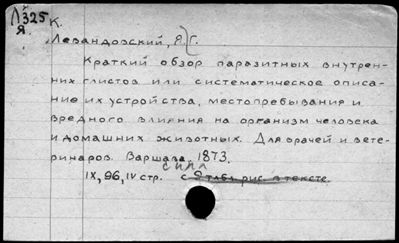 Л325 К.
Я.
Левандовский, Я. Г.
Краткий обзор паразитных внутрен-
них глистов или систематическое описа-
ние их устройства, местопребывания и
вредного влияния на организм человека
и домашних животных. Для врачей и вете-
ринаров. Варшава, 1873.
IX, 96, IV стр. с 2 табл. рис. в тексте